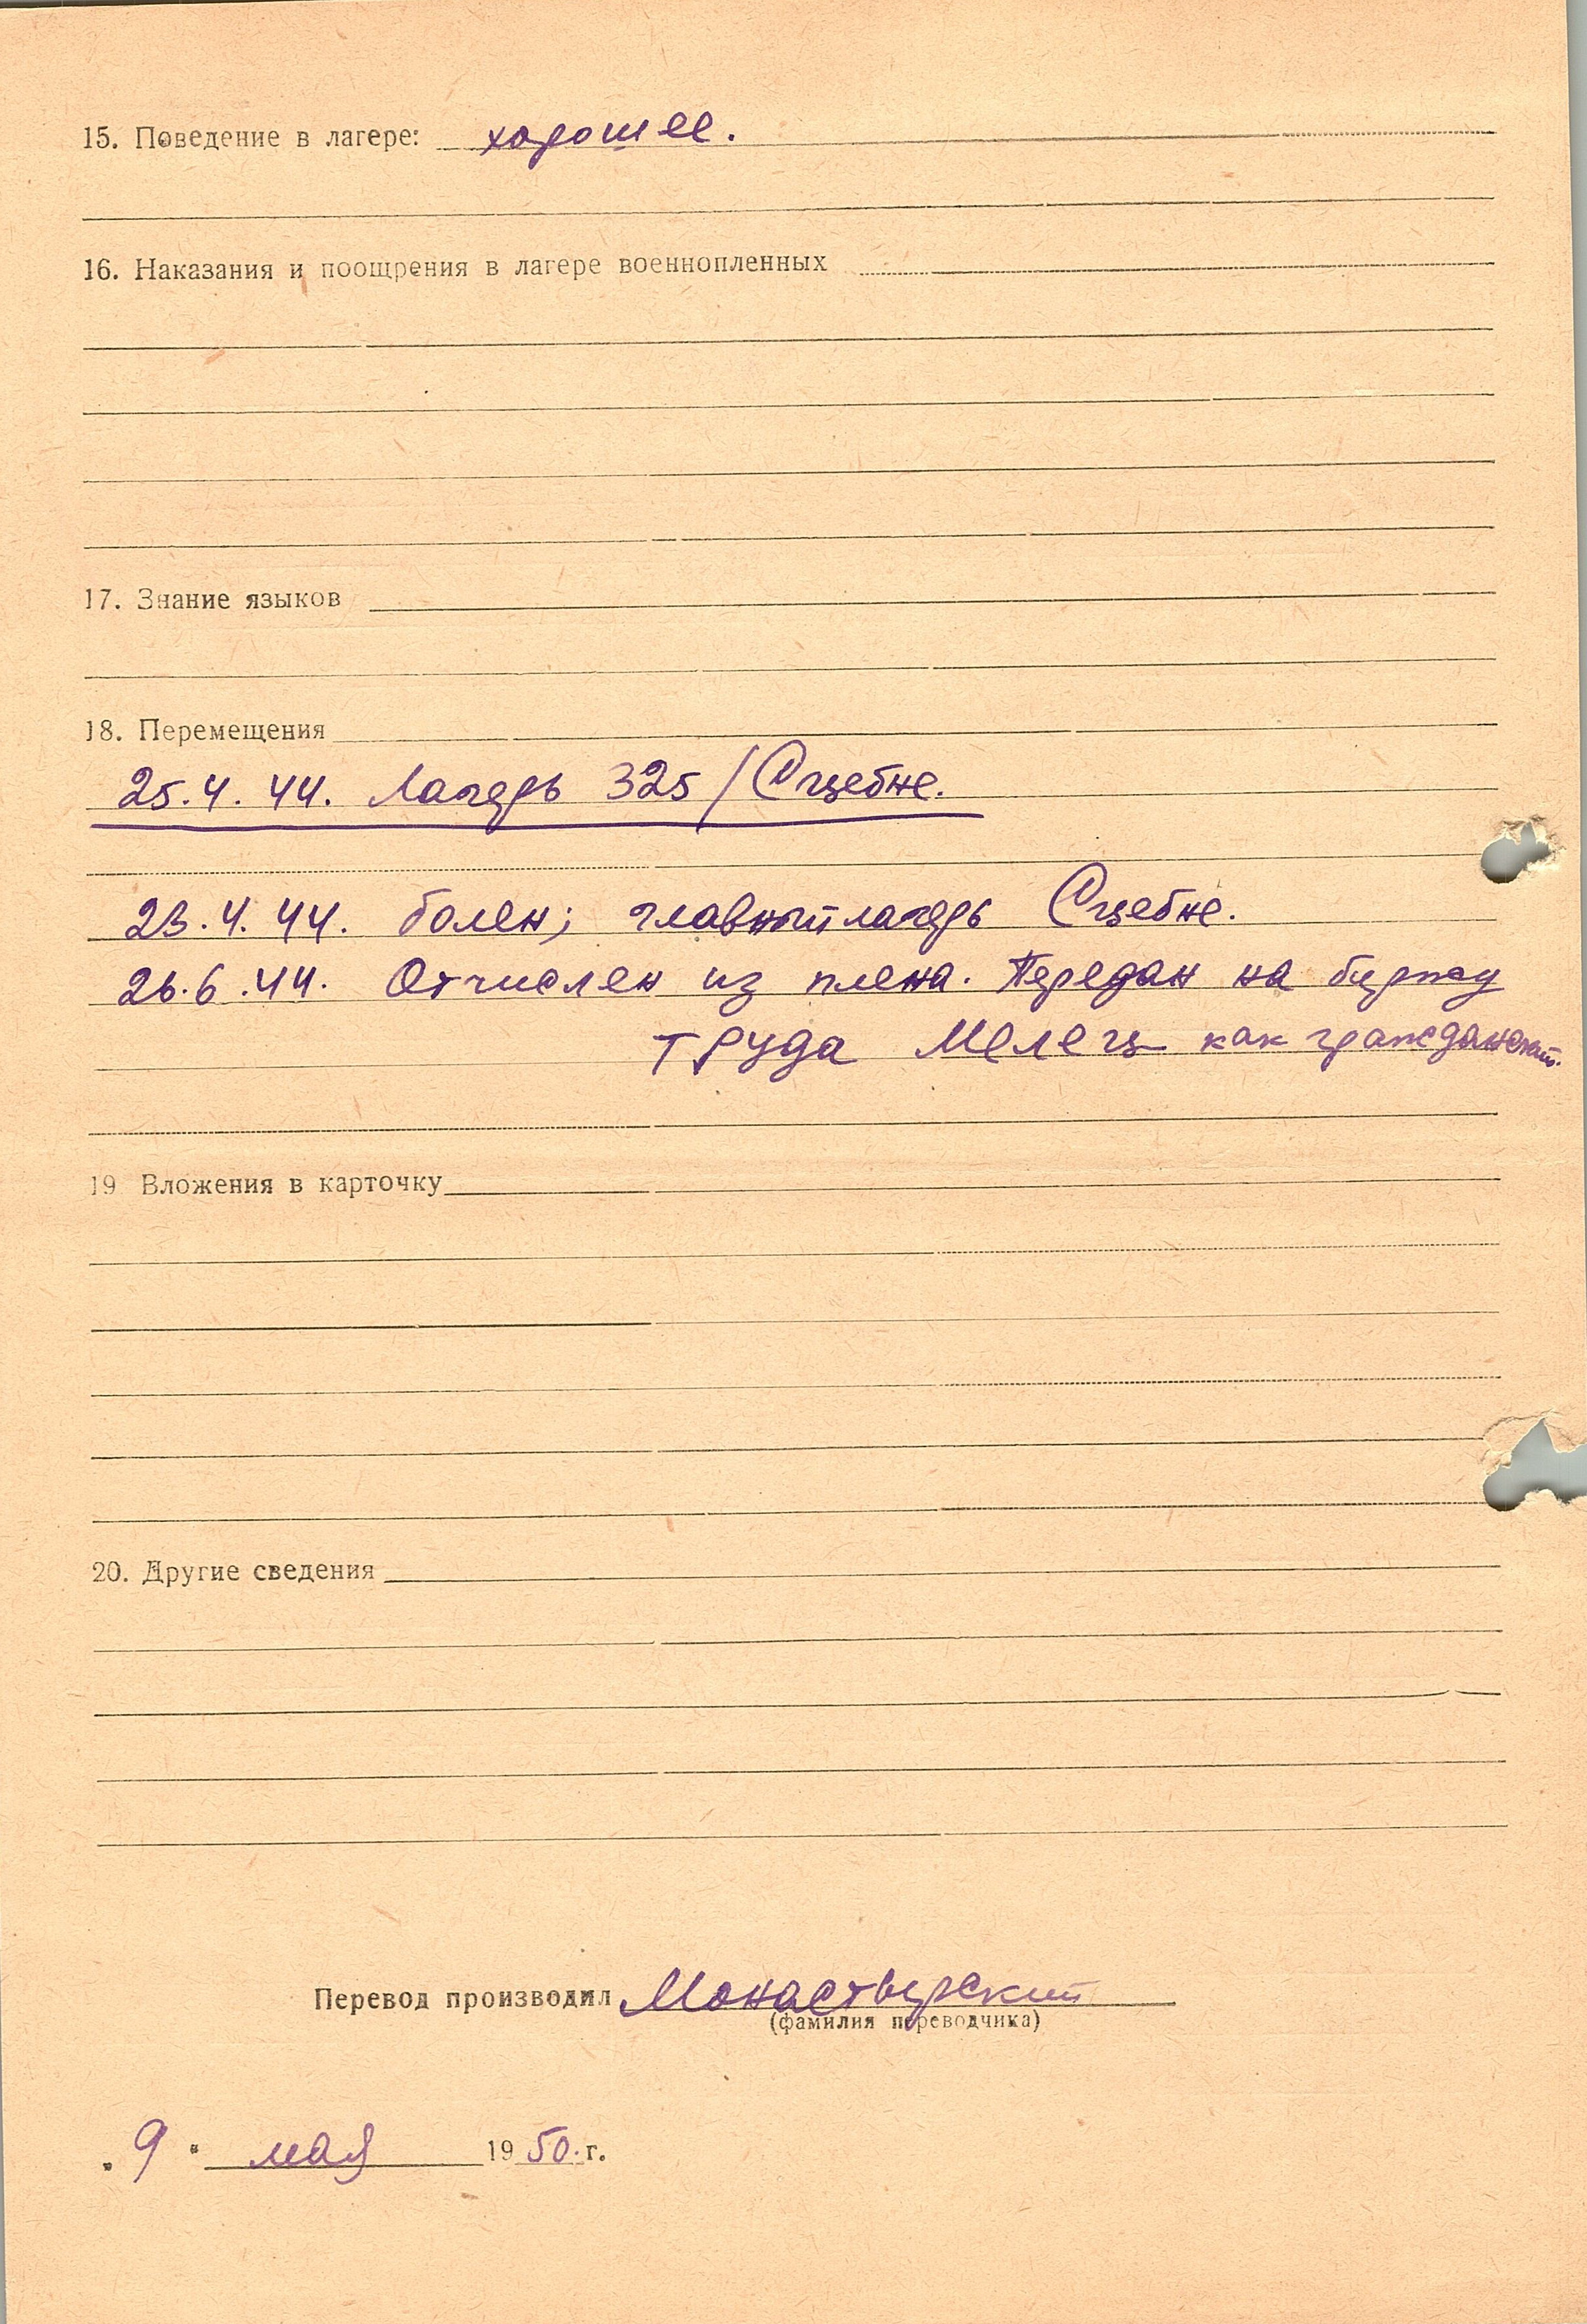 15. Поведение в лагере: хорошее.
16. Наказания и поощрения в лагере военнопленных
17. Знание языков
18. Перемещения
25.4.44. Лагерь 325/Сцебне.
23.4.44. болен; главный лагерь Сцебне.
26.6.44. Отчислен из плена. Передан на биржу
труда Мелец как гражданский.
19 Вложения в карточку
20. Другие сведения
Перевод производил Монастырский
(фамилия переводчика)
"9" мая 1950 г.